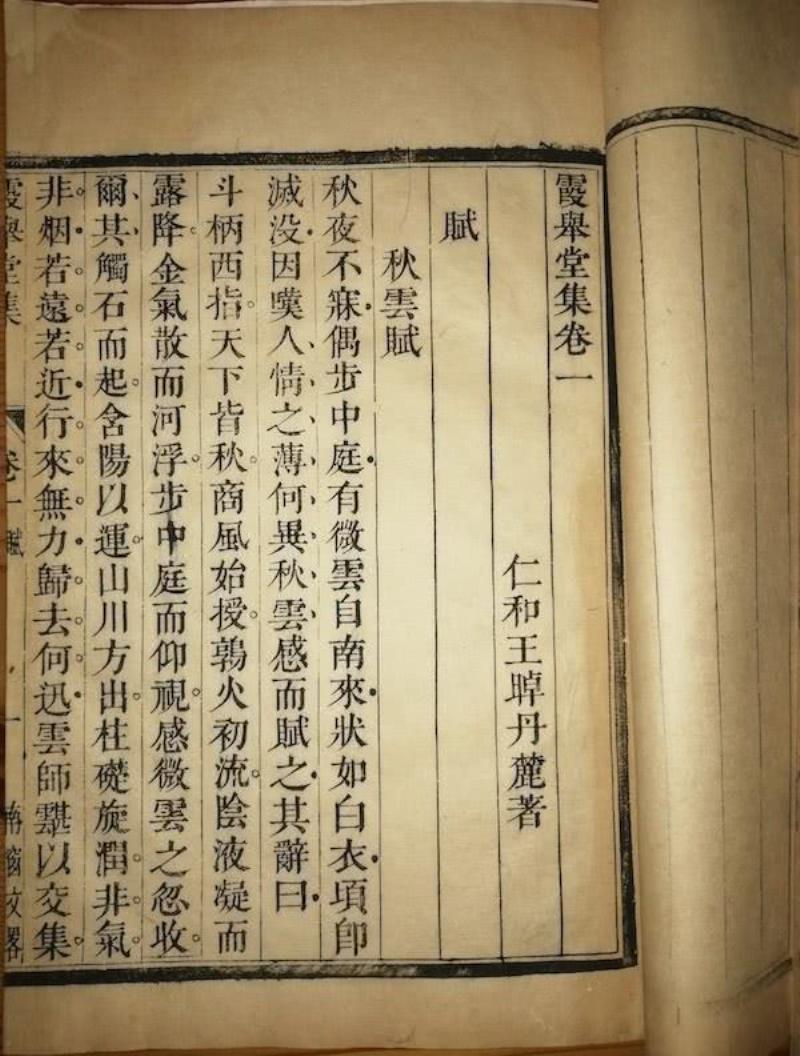 霞舉堂集卷一
仁和王晫丹麓著
賦
秋雲賦
秋夜不寐偶步中庭有微雲自南來狀如白衣頃卽
滅没因嘆人情之薄何異秋雲感而賦之其辭曰
斗柄西指天下皆秋商風始授鶉火初流陰液凝而
露降金氣散而河浮步中庭而仰視感微雲之忽收
爾其觸石而起含陽以運山川方出柱礎旋潤非氣
非烟若遠若近行來無力歸去何迅雲師靆以交集
霞舉堂集 卷一 賦 一